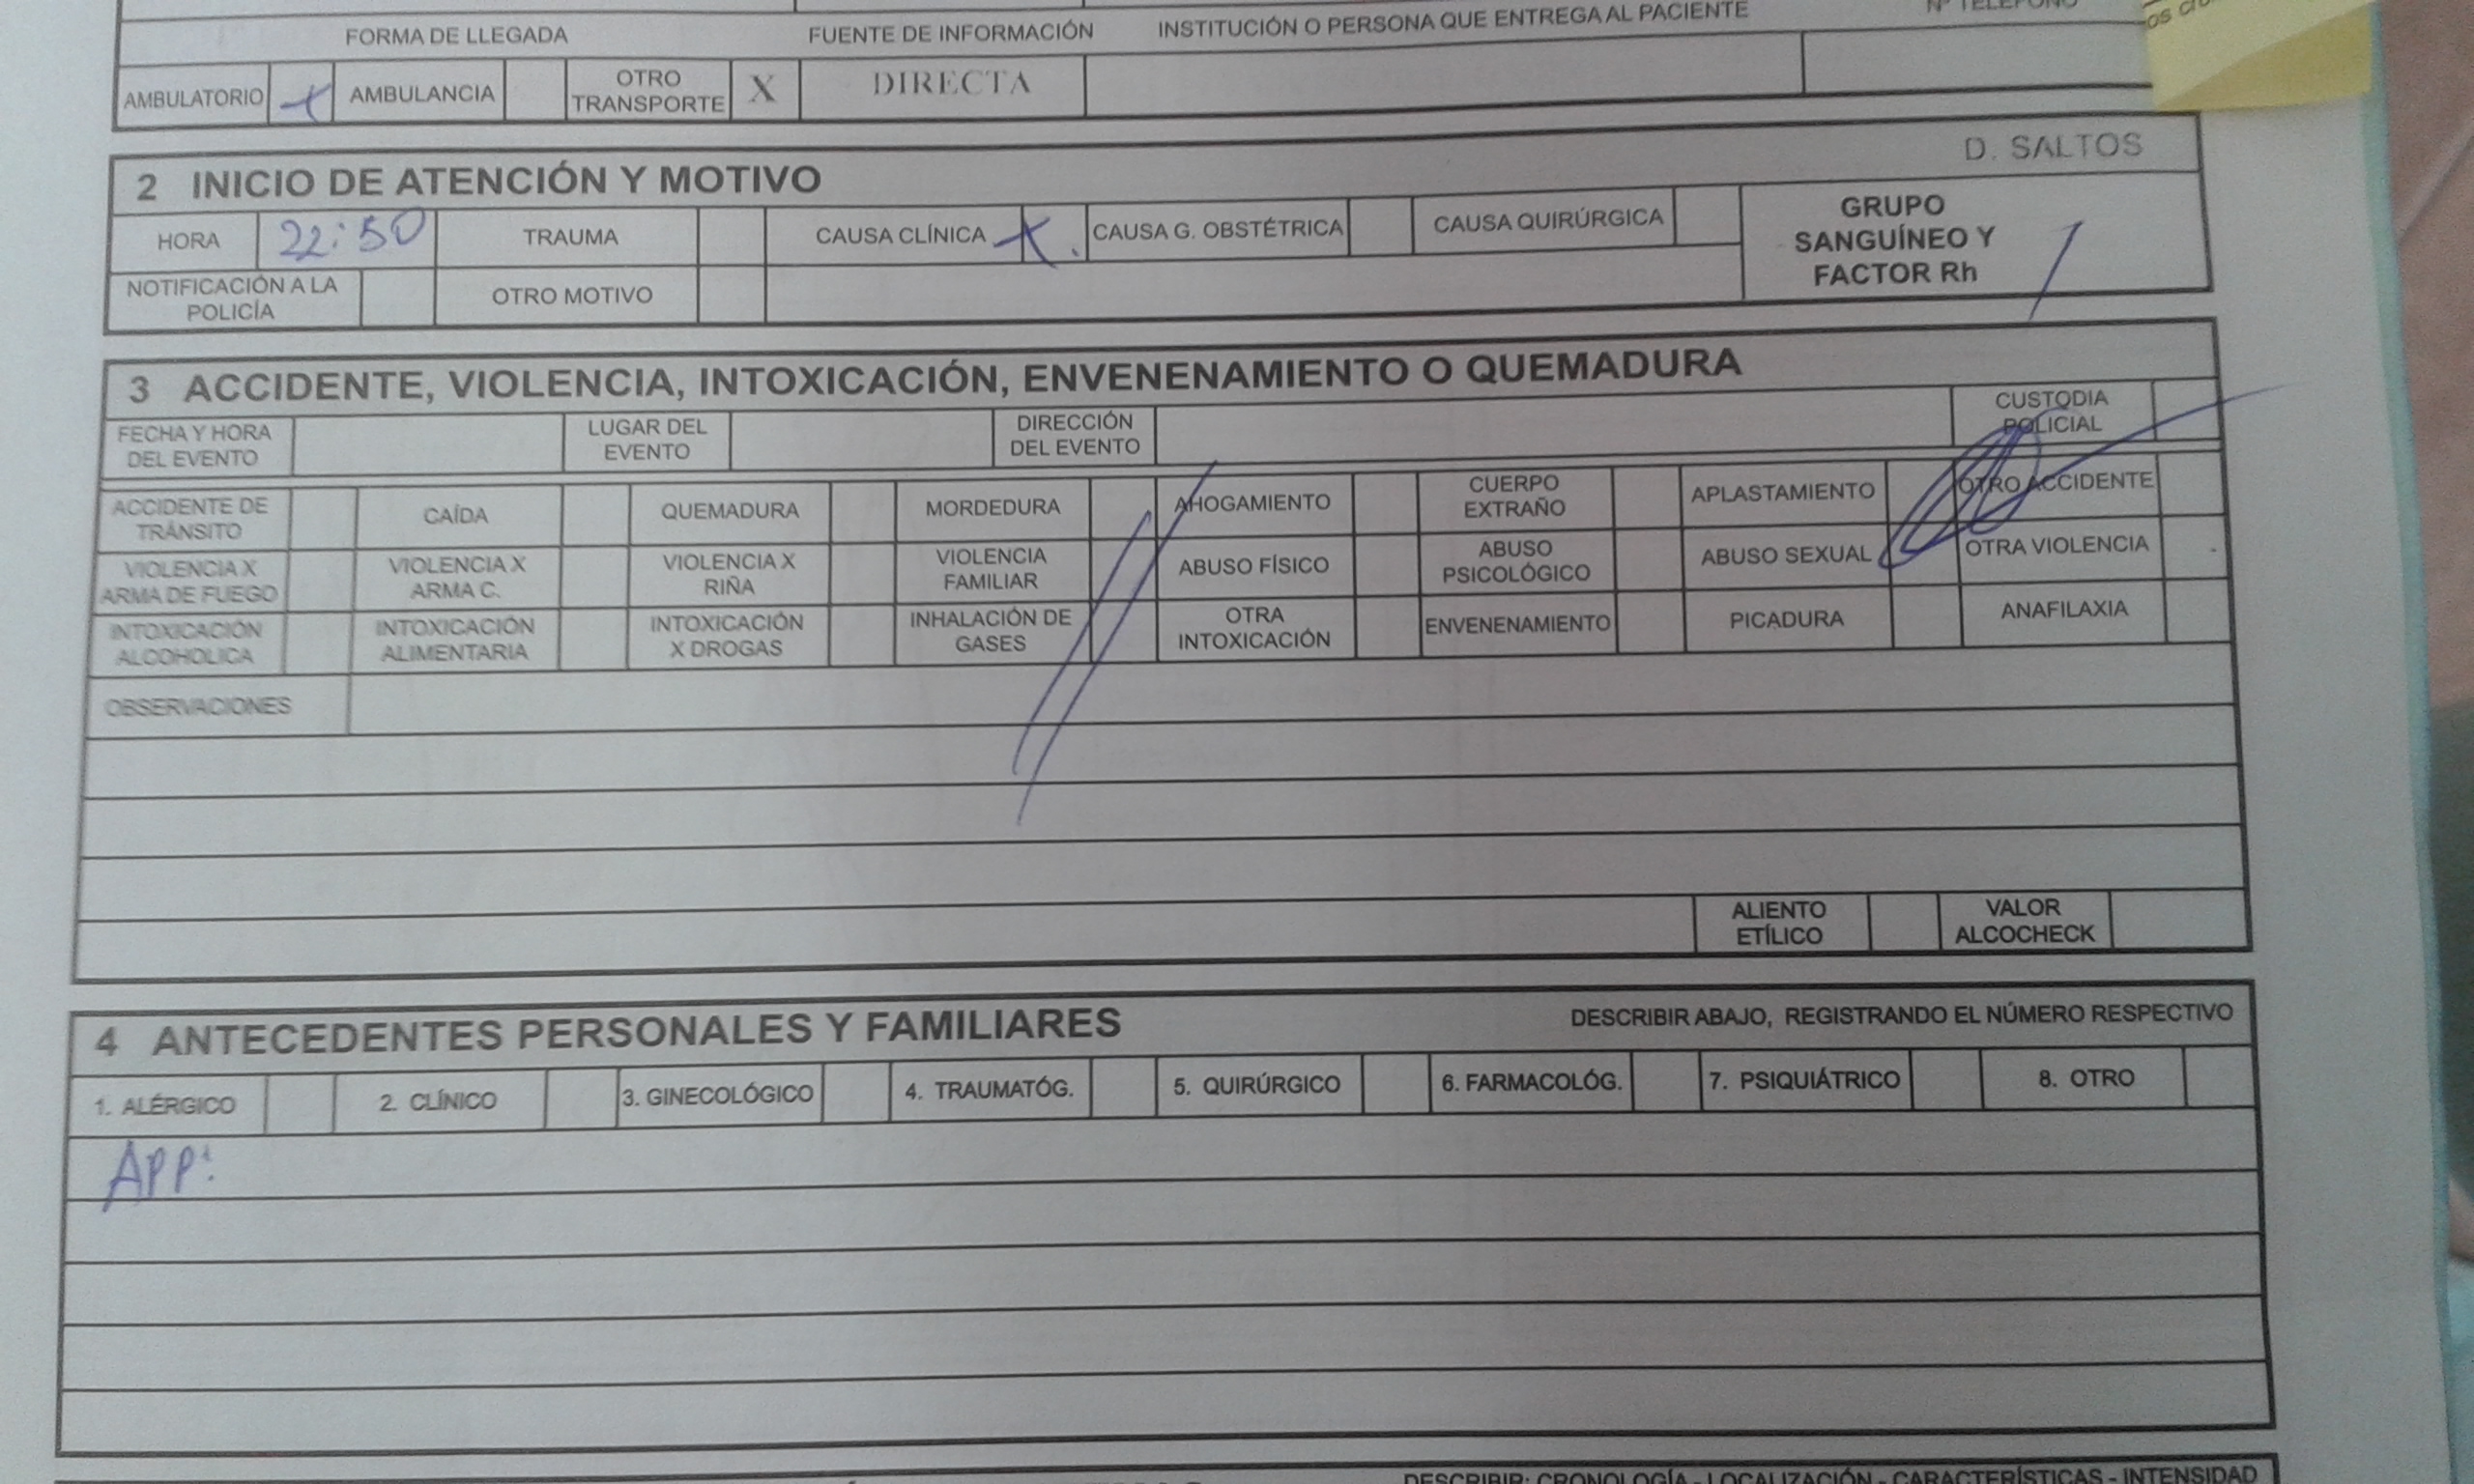 FORMA DE LLEGADA FUENTE DE INFORMACIÓN INSTITUCIÓN O PERSONA QUE ENTREGA AL PACIENTE Nº TELÉFONO
AMBULATORIO X AMBULANCIA OTRO TRANSPORTE X DIRECTA
D. SALTOS
2 INICIO DE ATENCIÓN Y MOTIVO
HORA 22:50 TRAUMA CAUSA CLÍNICA X. CAUSA G. OBSTÉTRICA CAUSA QUIRÚRGICA GRUPO SANGUÍNEO Y FACTOR Rh
NOTIFICACIÓN A LA POLICÍA OTRO MOTIVO
3 ACCIDENTE, VIOLENCIA, INTOXICACIÓN, ENVENENAMIENTO O QUEMADURA
FECHA Y HORA DEL EVENTO LUGAR DEL EVENTO DIRECCIÓN DEL EVENTO CUSTODIA POLICIAL
ACCIDENTE DE TRÁNSITO CAÍDA QUEMADURA MORDEDURA AHOGAMIENTO CUERPO EXTRAÑO APLASTAMIENTO OTRO ACCIDENTE
VIOLENCIA X ARMA DE FUEGO VIOLENCIA X ARMA C. VIOLENCIA X RIÑA VIOLENCIA FAMILIAR ABUSO FÍSICO ABUSO PSICOLÓGICO ABUSO SEXUAL OTRA VIOLENCIA
INTOXICACIÓN ALCOHOLICA INTOXICACIÓN ALIMENTARIA INTOXICACIÓN X DROGAS INHALACIÓN DE GASES OTRA INTOXICACIÓN ENVENENAMIENTO PICADURA ANAFILAXIA
OBSERVACIONES
ALIENTO ETÍLICO VALOR ALCOCHECK
4 ANTECEDENTES PERSONALES Y FAMILIARES DESCRIBIR ABAJO, REGISTRANDO EL NÚMERO RESPECTIVO
1. ALÉRGICO 2. CLÍNICO 3. GINECOLÓGICO 4. TRAUMATÓG. 5. QUIRÚRGICO 6. FARMACOLÓG. 7. PSIQUIÁTRICO 8. OTRO
APP:
DESCRIBIR: CRONOLOGÍA - LOCALIZACIÓN - CARACTERÍSTICAS - INTENSIDAD